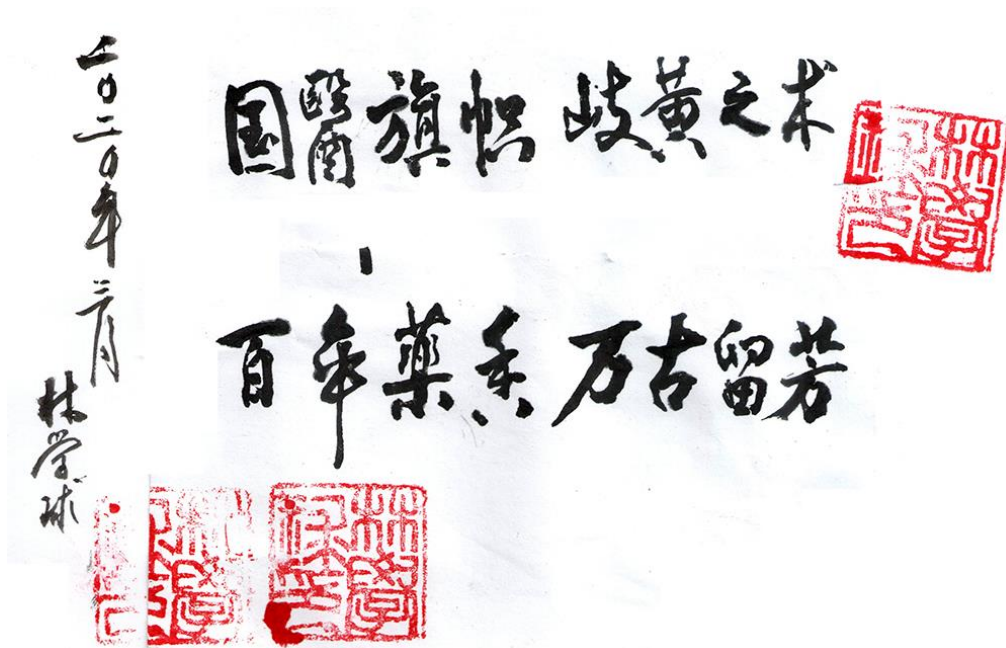 国醫旗帜 岐黄之术
百年藥香 万古留芳
二0二0年二月
林学球